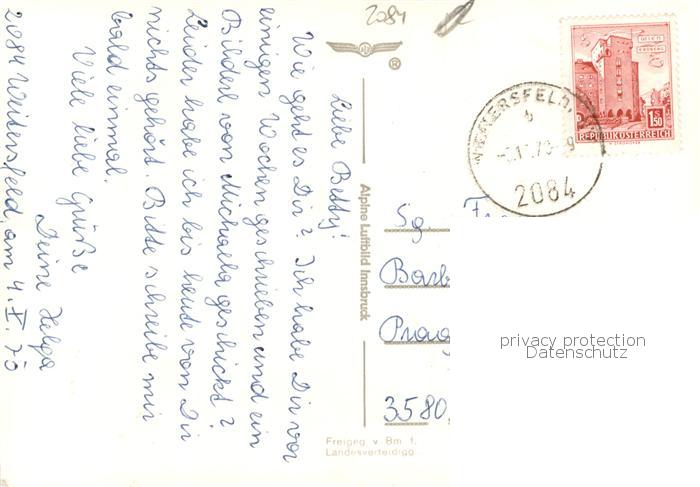 2084
Liebe Betty!
Wie geht es Dir? Ich habe Dir vor
einigen Wochen geschrieben und ein
Bilderl von Michaela geschickt?
Leider habe ich bis heute von Dir
nichts gehört. Bitte schreibe mir
bald einmal.
Viele liebe Grüße
Deine Helga
2084 Weitersfeld, am 4. X. 75
®
Alpine Luftbild Innsbruck
Freigeg. v. Bm. f.
Landesverteidigg.
WIEN
ERDBERG
1.50
REPUBLIK ÖSTERREICH
2084
Sg.
Barb
Prag
3580,
privacy protection
Datenschutz